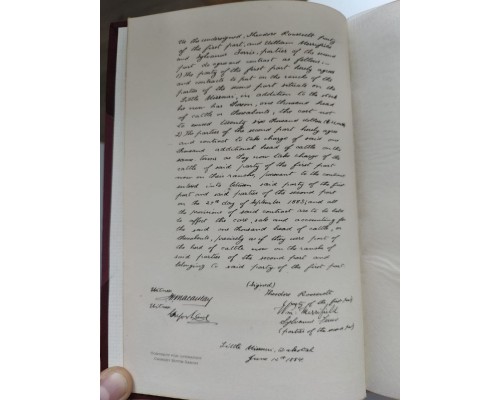 We the undersigned, Theodore Roosevelt party
of the first part, and William Merrifield
and Sylvanus Ferris, parties of the second
part do agree and contract as follows:—
1) The party of the first part hereby agrees
and contracts to put on the ranche of the
parties of the second part situate on the
Little Missouri, in addition to the stock
he now has thereon, one thousand head
of cattle or thereabouts, the cost not
to exceed twenty six thousand dollars
2) The parties of the second part hereby agree
and contract to take charge of said one
thousand additional head of cattle on the
same terms as they now take charge of the
cattle of said party of the first part
now on their ranche, pursuant to the contract
entered into between said party of the first
part and said parties of the second part
on the 27th day of September 1883; and all
the provisions of said contract are to be held
to affect the care, sale and accounting for
the said one thousand head of cattle, or
thereabouts, precisely as if they were part of
the herd of cattle now on the ranche of
said parties of the second part and
belonging to said party of the first part
(Signed)
Theodore Roosevelt
(party of the first part)
Wm. Merrifield
Sylvanus Ferris
(parties of the second part)
Witness
Witness
Little Missouri, Dakota
June 12th 1884